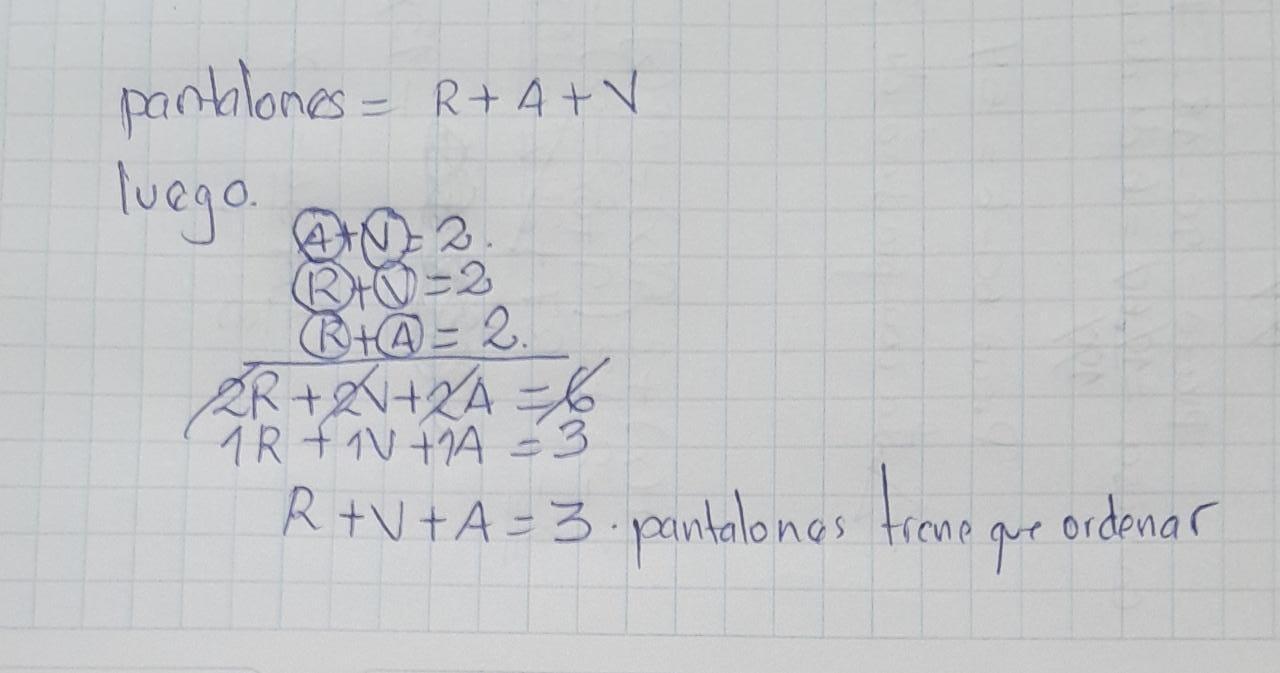 pantalones = R + A + V
luego.
A+V= 2.
R+V=2
R+A= 2.
2R + 2V+2A =6
1R + 1V +1A = 3
R +V+A = 3. pantalones tiene que ordenar